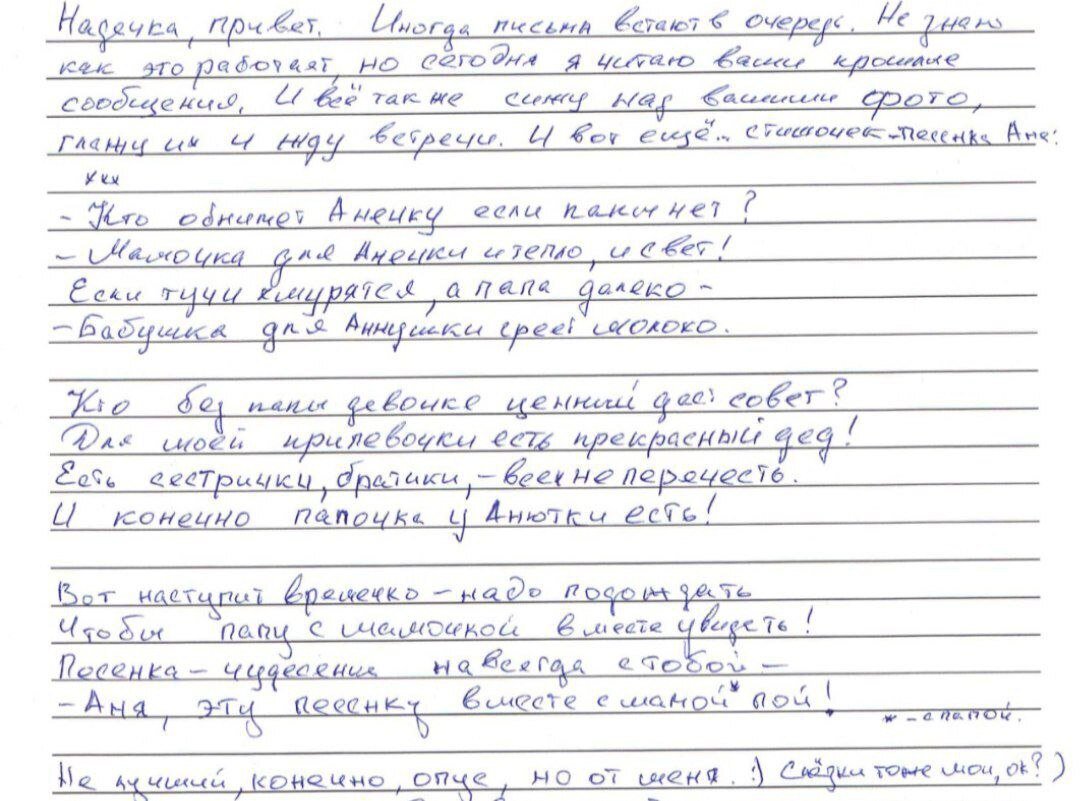 Надечка, привет. Иногда письма встают в очередь. Не знаю
как это работает, но сегодня я читаю ваши прошлые
сообщения. И всё также сижу над вашими фото,
глажу их и жду встречи. И вот ещё.. стишочек-песенка Ане:
ххх
- Кто обнимет Анечку если папы нет?
- Мамочка для Анечки и тепло, и свет!
Если тучи хмурятся, а папа далеко -
- Бабушка для Аннушки греет молоко.
Кто без папы девочке ценный даст совет?
Для моей припевочки есть прекрасный дед!
Есть сестрички, братики, - всех не перечесть.
И конечно папочка у Анютки есть!
Вот наступит времечко - надо подождать
Чтобы папу с мамочкой вместе увидеть!
Песенка - чудесенка навсегда с тобой -
- Аня, эту песенку вместе с мамой* пой!
* - с папой.
Не лучший, конечно, опус, но от меня. :) Сказки тоже мои, ок? )